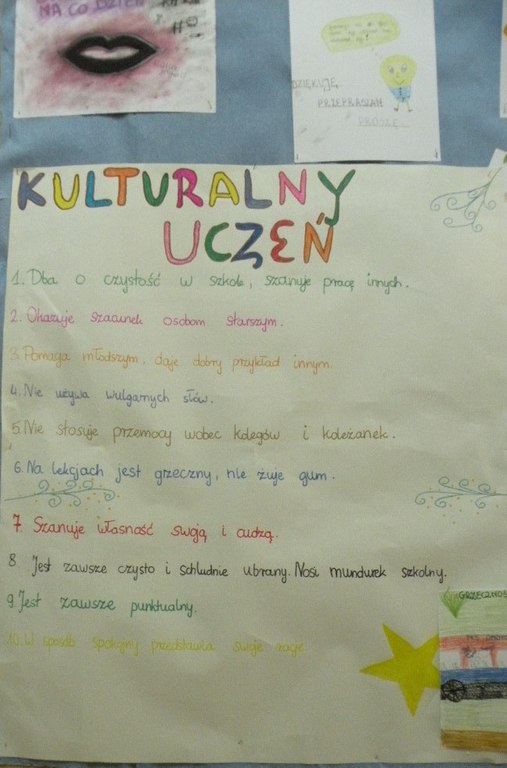 NA CO DZIEŃ
DZIĘKUJĘ,
PRZEPRASZAM
PROSZĘ.
KULTURALNY
UCZEŃ
1. Dba o czystość w szkole, szanuje pracę innych.
2. Okazuje szacunek osobom starszym.
3. Pomaga młodszym, daje dobry przykład innym.
4. Nie używa wulgarnych słów.
5. Nie stosuje przemocy wobec kolegów i koleżanek.
6. Na lekcjach jest grzeczny, nie żuje gum.
7. Szanuje własność swoją i cudzą.
8. Jest zawsze czysto i schludnie ubrany. Nosi mundurek szkolny.
9. Jest zawsze punktualny.
10. W sposób spokojny przedstawia swoje racje.
GRZECZNOŚ